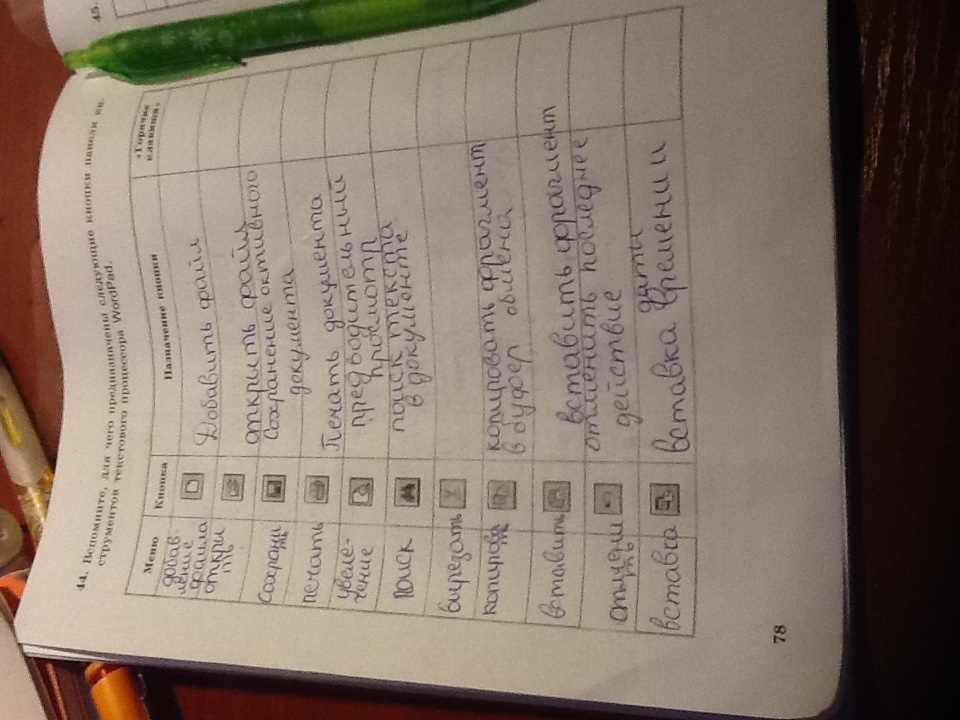 45.
44. Вспомните, для чего предназначены следующие кнопки панели ин-
струментов текстового процессора WordPad.
Меню Кнопка Назначение кнопки «Горячие
клавиши»
добав-
ление
файла
Добавить файл
откры
ть
открыть файл
сохрани
ть
Сохранение октивного
документа
печать
Печать документа
увеле-
чение
предводительный
промотр
поиск
поиск текста
в документе
вырезать
копирова
ть
копировать фрагмент
в буфер обмена
вставить
вставить фрагмент
отмени
ть
отменить последнее
действие
вставка
вставка времени и
даты
78